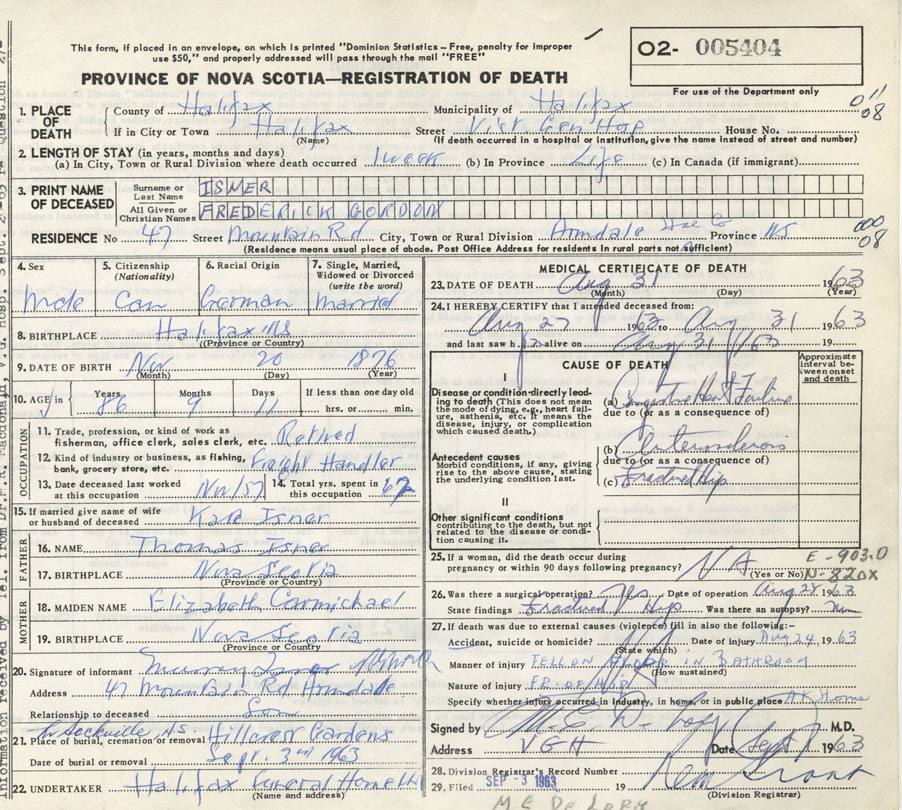 This form, if placed in an envelope, on which is printed "Dominion Statistics – Free, penalty for improper
use $50," and properly addressed will pass through the mail "FREE"
O2- 005404
PROVINCE OF NOVA SCOTIA—REGISTRATION OF DEATH
For use of the Department only
1. PLACE OF DEATH County of Halifax Municipality of Halifax 011 08
If in City or Town Halifax Street Vict. Gen Hosp House No.
(Name) (If death occurred in a hospital or institution, give the name instead of street and number)
2. LENGTH OF STAY (in years, months and days)
(a) In City, Town or Rural Division where death occurred 1 week (b) In Province Life (c) In Canada (if immigrant)
3. PRINT NAME OF DECEASED Surname or Last Name ISNER
All Given or Christian Names FREDERICK GORDON
RESIDENCE No 47 Street Mountain Rd City, Town or Rural Division Armdale Hfx Co Province NS 000 08
(Residence means usual place of abode. Post Office Address for residents in rural parts not sufficient)
4. Sex Male
5. Citizenship (Nationality) Can
6. Racial Origin German
7. Single, Married, Widowed or Divorced (write the word) Married
8. BIRTHPLACE Halifax NS
(Province or Country)
9. DATE OF BIRTH Nov 20 1876
(Month) (Day) (Year)
10. AGE in Years 86 Months 9 Days 11 If less than one day old hrs. or min.
OCCUPATION
11. Trade, profession, or kind of work as fisherman, office clerk, sales clerk, etc. Retired
12. Kind of industry or business, as fishing, bank, grocery store, etc. Freight Handler
13. Date deceased last worked at this occupation Nov/57 14. Total yrs. spent in this occupation 67
15. If married give name of wife or husband of deceased Kate Isner
FATHER
16. NAME Thomas Isner
17. BIRTHPLACE Nova Scotia
(Province or Country)
MOTHER
18. MAIDEN NAME Elizabeth Carmichael
19. BIRTHPLACE Nova Scotia
Province or Country
20. Signature of informant Murray Isner
Address 47 Mountain Rd Armdale
Relationship to deceased Son
Sackville N.S.
21. Place of burial, cremation or removal Hillcrest Gardens
Date of burial or removal Sept. 3rd 1963
22. UNDERTAKER Halifax Funeral Home Ltd
(Name and address)
MEDICAL CERTIFICATE OF DEATH
23. DATE OF DEATH Aug 31 1963
(Month) (Day) (Year)
24. I HEREBY CERTIFY that I attended deceased from:
Aug 27 1963 to Aug 31 1963
and last saw him alive on Aug 31/63 19
CAUSE OF DEATH
Approximate interval between onset and death
I
Disease or condition directly leading to death (This does not mean the mode of dying, e.g., heart failure, asthenia, etc. It means the disease, injury, or complication which caused death.)
(a) Congestive Heart Failure
due to (or as a consequence of)
(b) Arterosclerosis
due to (or as a consequence of)
Antecedent causes
Morbid conditions, if any, giving rise to the above cause, stating the underlying condition last.
(c) Fractured Hip
II
Other significant conditions
contributing to the death, but not related to the disease or condition causing it.
25. If a woman, did the death occur during pregnancy or within 90 days following pregnancy? NA E-903.0
(Yes or No) N-820X
26. Was there a surgical operation? Yes Date of operation Aug 28 1963
State findings Fractured Hip Was there an autopsy?
27. If death was due to external causes (violence) fill in also the following:—
Accident, suicide or homicide? Date of injury Aug 24, 1963
(State which)
Manner of injury FELL ON FLOOR IN BATHROOM
(How sustained)
Nature of injury FR. OF HIP
Specify whether injury occurred in industry, in home, or in public place At Home
Signed by M.E. De Lory M.D.
Address VGH Date Sept 1 1963
28. Division Registrar's Record Number
29. Filed SEP - 3 1963 19
(Division Registrar)
M.E. DE LORY
Information received by Tel. from Dr. F.R. Macdonald, V.G. Hosp. Sept.